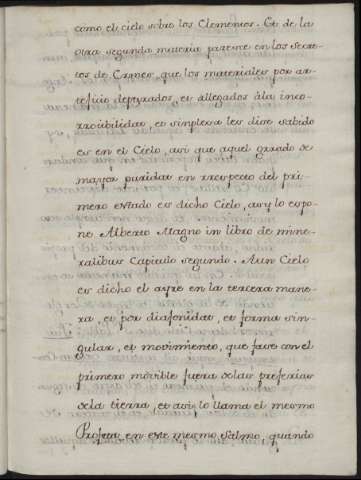 como el cielo sobre los Elementos. Et de la
otra segunda materia paresce en los Secre-
tos de Ermes, que los materiales por ar-
tefiçio depurados, et allegados á la inco-
rroibilidat, et simpleza les dixe sabido
es en el Cielo, asi que aquel grado de
mayor puridat en respecto del pri-
mero estado es dicho Cielo, asy lo espo-
ne Alberto Magno in libro de mine-
ralibus Capitulo segundo. Aun Cielo
es dicho el ayre en la tercera mane-
ra, et por diafonidat, et forma sin-
gular, et movimiento, que fase con el
primero movible fuera de las preferias
de la tierra, et asi lo llama el mesmo
Profeta en este mesmo Salmo, quando